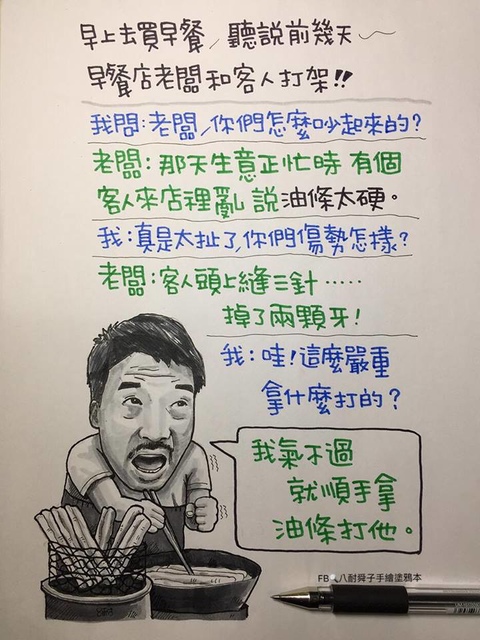 早上去買早餐，聽說前幾天～
早餐店老闆和客人打架!!
我問：老闆，你們怎麼吵起來的？
老闆：那天生意正忙時 有個
客人來店裡亂說油條太硬。
我：真是太扯了，你們傷勢怎樣？
老闆：客人頭上縫三針……
掉了兩顆牙！
我：哇！這麼嚴重
拿什麼打的？
我氣不過
就順手拿
油條打他。
八耐舜子手繪塗鴉本